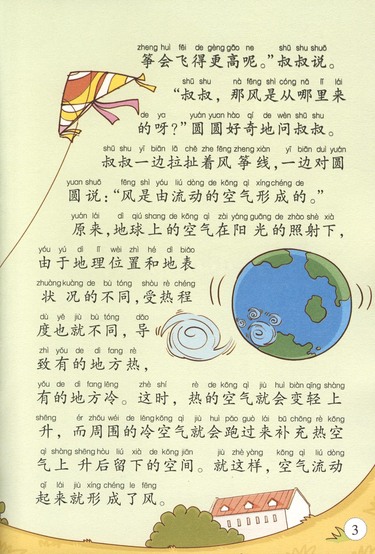 zheng huì fēi de gèng gāo ne shū shu shuō
筝会飞得更高呢。”叔叔说。
shū shu nà fēng shì cóng nǎ lǐ lái
“叔叔，那风是从哪里来
de ya yuán yuan hào qí de wèn shū shu
的呀？”圆圆好奇地问叔叔。
shū shu yì biān lā chě zhe fēng zheng xiàn yì biān duì yuán
叔叔一边拉扯着风筝线，一边对圆
yuan shuō fēng shì yóu liú dòng de kōng qì xíng chéng de
圆说：“风是由流动的空气形成的。”
yuán lái dì qiú shang de kōng qì zài yáng guāng de zhào shè xià
原来，地球上的空气在阳光的照射下，
yóu yú dì lǐ wèi zhì hé dì biǎo
由于地理位置和地表
zhuàng kuàng de bù tóng shòu rè chéng
状况的不同，受热程
dù yě jiù bù tóng dǎo
度也就不同，导
zhì yǒu de dì fang rè
致有的地方热，
yǒu de dì fang lěng zhè shí rè de kōng qì jiù huì biàn qīng shàng
有的地方冷。这时，热的空气就会变轻上
shēng ér zhōu wéi de lěng kōng qì jiù huì pǎo guò lái bǔ chōng rè kōng
升，而周围的冷空气就会跑过来补充热空
qì shàng shēng hòu liú xià de kōng jiān jiù zhè yàng kōng qì liú dòng
气上升后留下的空间。就这样，空气流动
qǐ lái jiù xíng chéng le fēng
起来就形成了风。
3